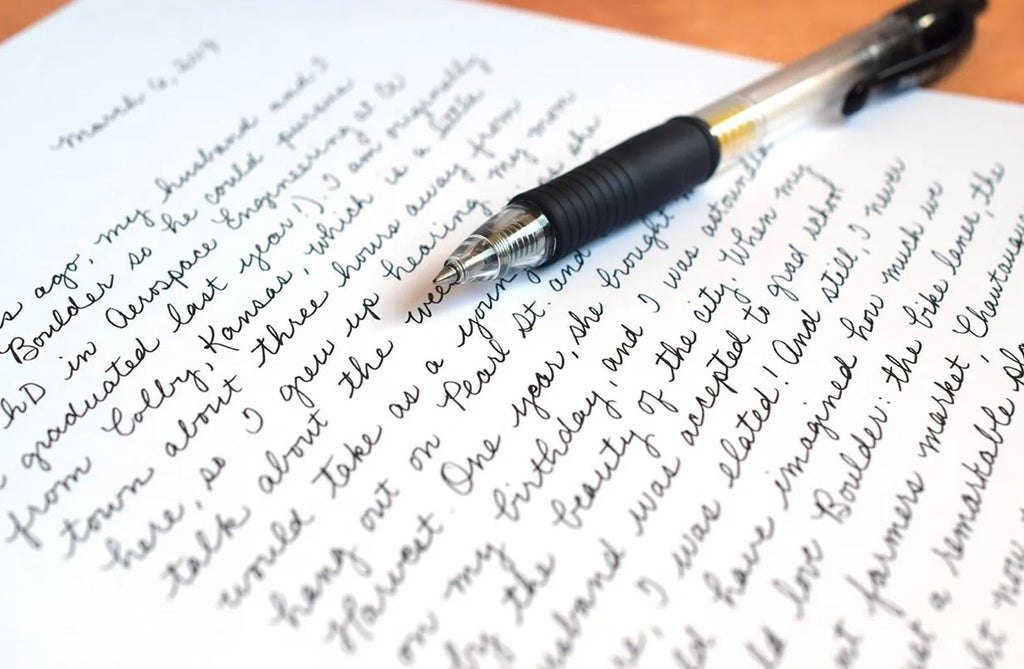 March 6,
s ago, my husband and I
Boulder so he could pursue
hD in Aerospace Engineering at CU
graduated last year!). I am originally
from Colby, Kansas, which is a little
town about three hours away from
here, so I grew up hearing my mom
talk about the wee she
would take as a young
hang out on Pearl St. and
Harvest. One year, she brought
on my birthday, and I was astounde
by the beauty of the city. When my
usband was accepted to grad school
re, I was elated! And still, I never
ld have imagined how much we
ld love Boulder: the bike lanes, the
nt farmers market, Chautauqu
st a remarkable pla
ht now